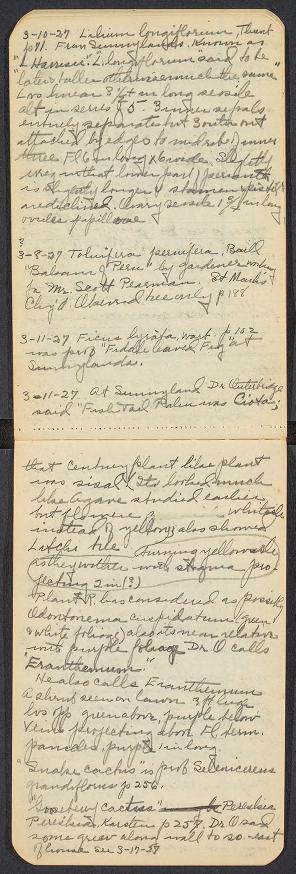 3-10-27 Lilium longiflorum, Thunb
p 71. From Sunnylands. Known as
"L Harrisii" "L. longiflorum" said to be
later, taller otherwise much the same
Lvs linear 3/4 in long sessile
alt in series of 5 3 inner sepals
entirely separate but 3 outer ones
attached by edges to midrib of inner
three Fl 6 in long x 6 wide. Slightly
irreg with that lower part of perianth
is slightly longer & stamens & pistil
are declined. Ovary sessile 1 3/4 in long
ovules papillae
?
3-8-27 Toluifera pereifera, Baill
"Balsam of Peru" by gardener working
for Mr. Scott Pearman, St Mark's
Ch'y'd. Observed tree only p 188
3-11-27 Ficus lyrata, Warb. p 102
was prob "Fiddle leaved Fig" at
Sunnylands.
3-11-27 At Sunnyland Dr. Outerbridge
said "Fish Tail Palm was
that Century plant like plant
was sisal. Its looked much
like Agave studied earlier
but flowers white
instead of yellow, also showed
Litchi tree. turning yellowish
as they wither with stigma pro-
jecting 2 in (?)
Plant R. has considered as possibly
Odontonema cuspidatum (green
& white foliage) also its near relative
with purple foliage Dr. O calls
"Eranthemum".
He also calls Eranthemum
a shrub seen on lawn 3 ft high
lvs opp green above, purple below
Veins projecting above Fl. term.
panicles, purple 1 in long.
"Snake cactus" is prob Selenicereus
grandiflorus p 256.
"Gooseberry cactus" Pereskia
Pereskia, Karsten p 257. Dr. O said
some grew along wall to so-east
of house see 3-17-27